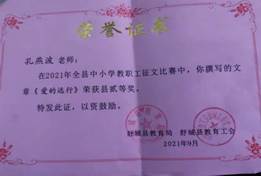 荣誉证书
孔燕波 老师：
在2021年全县中小学教职工征文比赛中，你撰写的文
章《爱的远行》荣获县贰等奖。
特发此证，以资鼓励。
舒城县教育局 舒城县教育工会
2021年9月